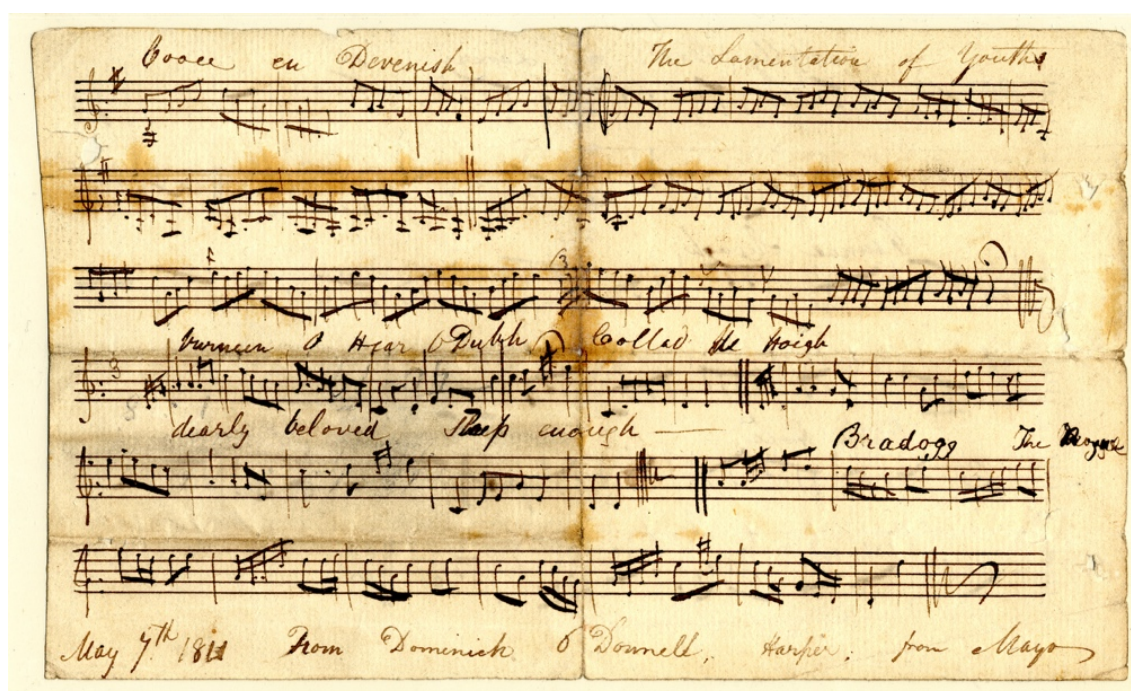 Cooee en Devenish The Lamentation of Youths
3
O Hear O Dubh Collad
3
dearly beloved Sleep enough —
Bradogg The Rogue
May 7th 1811 From Dominick O Donnell, Harper, from Mayo